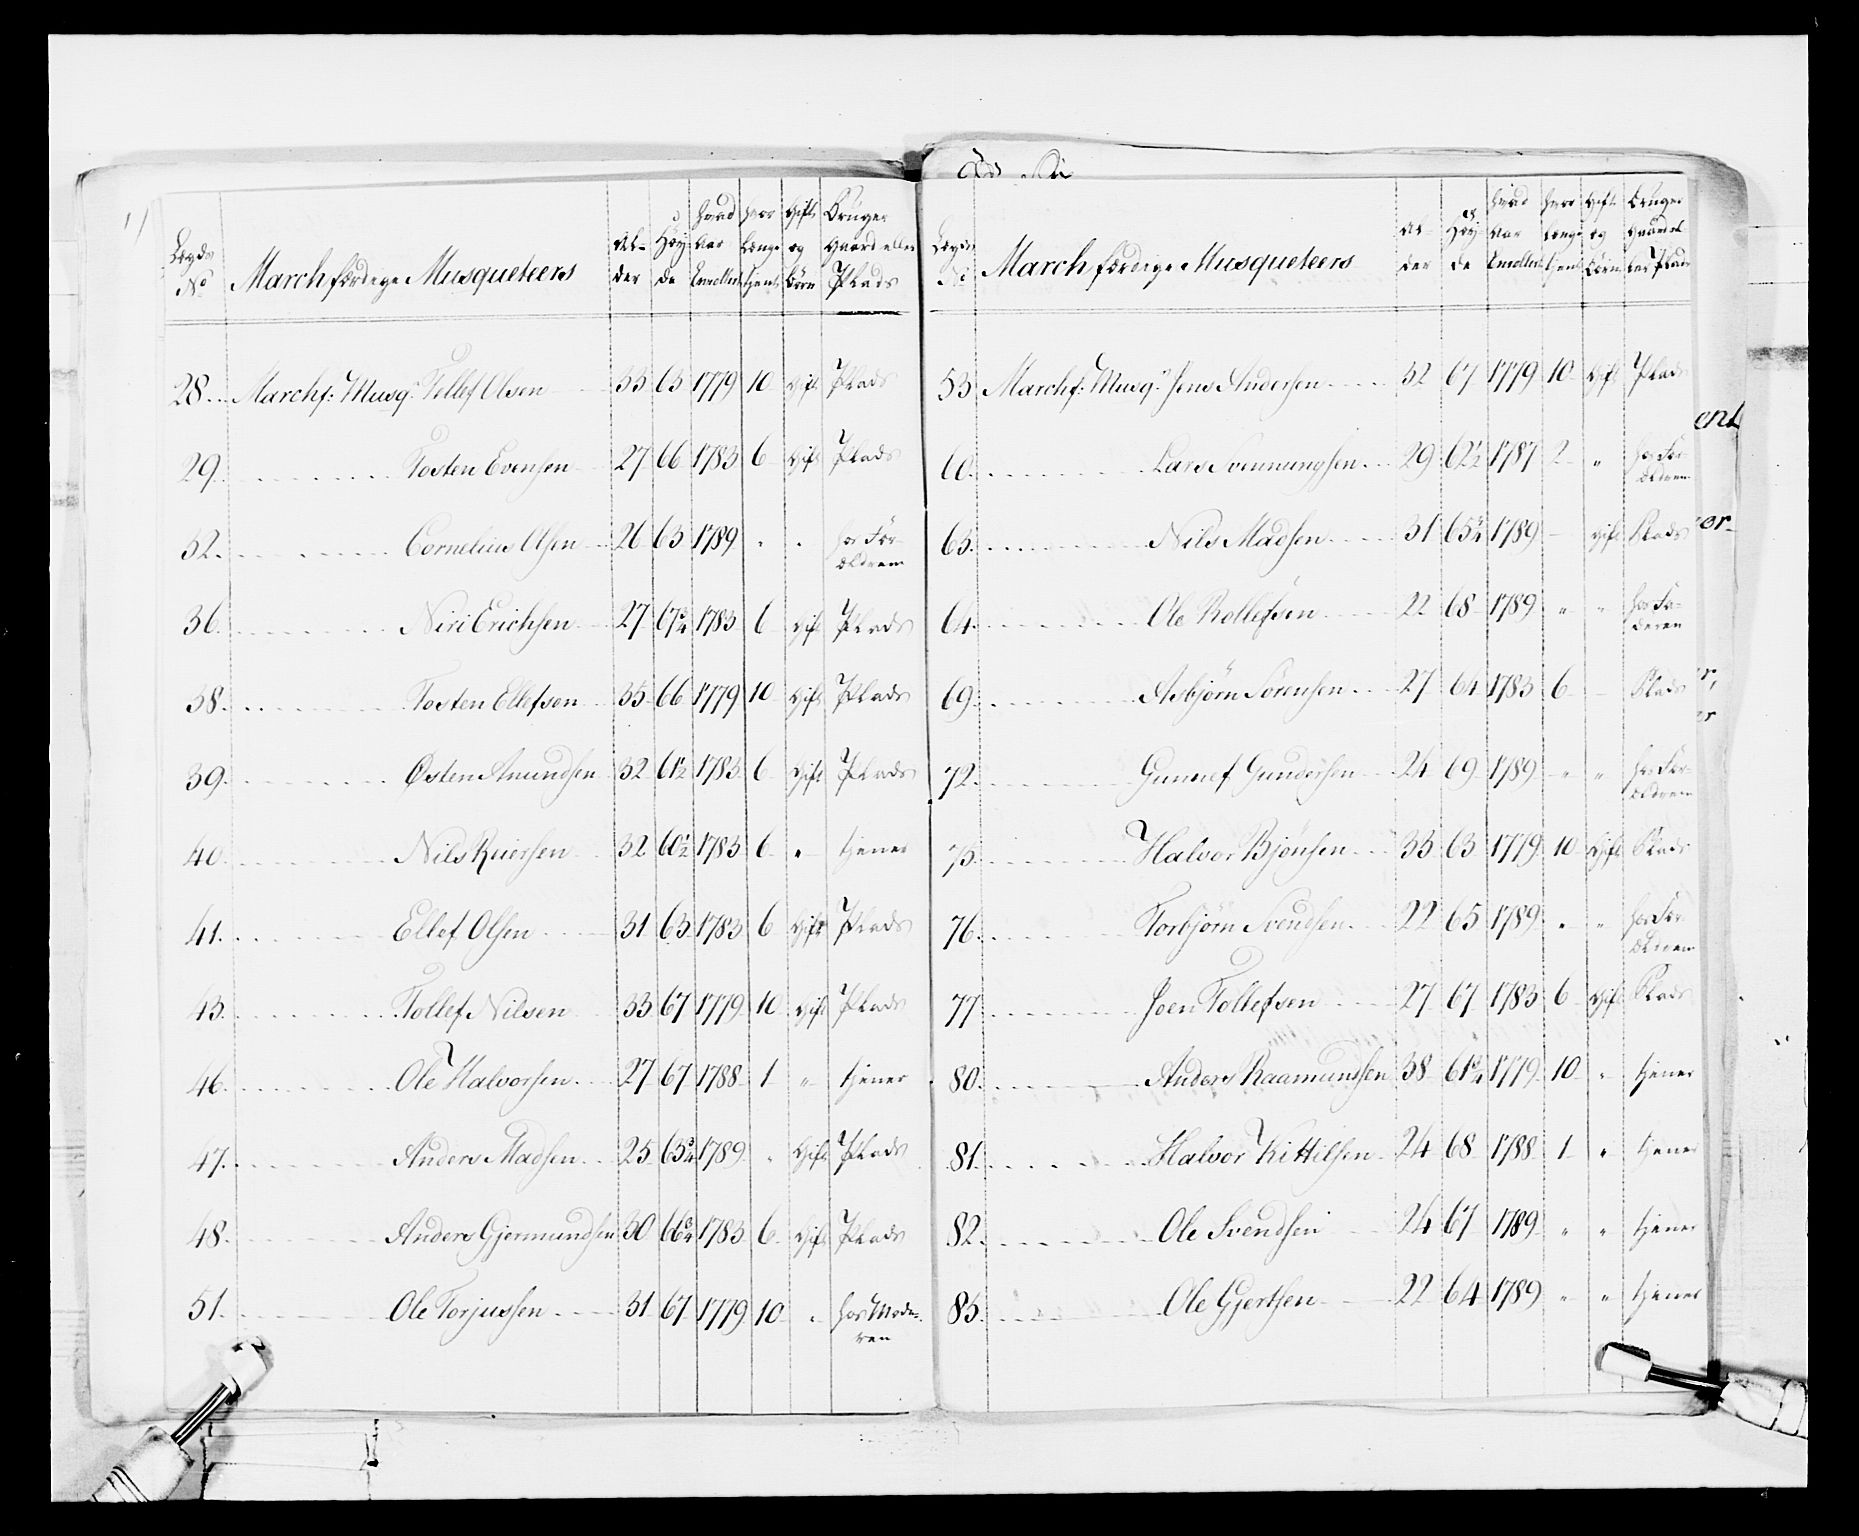 Lægds No | March færdige Musqueteers | Al- der | Høy- de | hvad Aar Enrollert | hvor Længe tjent | Gift og Børn | Bruger Gaard eller Plads
28. Marchf: Musqr Tollef Olsen 33 63 1779 10 Gift Plads
29. Tosten Evensen 27 66 1783 6 Gift Plads
32. Cornelius Olsen 26 63 1789 " " hos For- ældrene
36. Niri Erichsen 27 67¾ 1783 6 Gift Plads
38. Tosten Ellefsen 35 66 1779 10 Gift Plads
39. Østen Amundsen 32 61½ 1783 6 Gift Plads
40. Nils Ruersen 32 60½ 1783 6 " tjener
41. Ellef Olsen 31 63 1783 6 Gift Plads
43. Tollef Nilsen 33 67 1779 10 Gift Plads
46. Ole Halvorsen 27 67 1788 1 " tjener
47. Anders Madsen 25 65¾ 1789 " Gift Plads
48. Anders Gjermundsen 30 66¾ 1783 6 Gift Plads
51. Ole Torjussen 31 67 1779 10 " hos Mode- ren
Lægds No | March færdige Musqueteers | Al- der | Høy- de | hvad Aar Enrollert | hvor længe tjent | Gift og Børn | Bruger Gaard el- ler Plads
53 Marchf: Musqr Jens Andersen 32 67 1779 10 Gift Plads
60. Lars Svennungsen 29 62½ 1787 2 " hos For- ældrene
63. Nils Madsen 31 65¾ 1789 – Gift Plads
64. Ole Rollefsen 22 68 1789 " " hos Fa- deren
69. Asbjørn Sørensen 27 64 1783 6 – Plads
72. Gunuef Gundersen 24 69 1789 " " hos For- ældrene
75. Halvor Bjønsen 33 63 1779 10 Gift Plads
76. Torbjørn Svendsen 22 65 1789 " " hos For- ældrene
77 Joen Tollefsen 27 67 1783 6 Gift Plads
80. Anders Raamundsen 38 61¾ 1779 10 " tjener
81. Halvor Kittilsen 24 68 1788 1 " tjener
82. Ole Svendsen 24 67 1789 " " tjener
83. Ole Gjertsen 22 64 1789 " " tjener